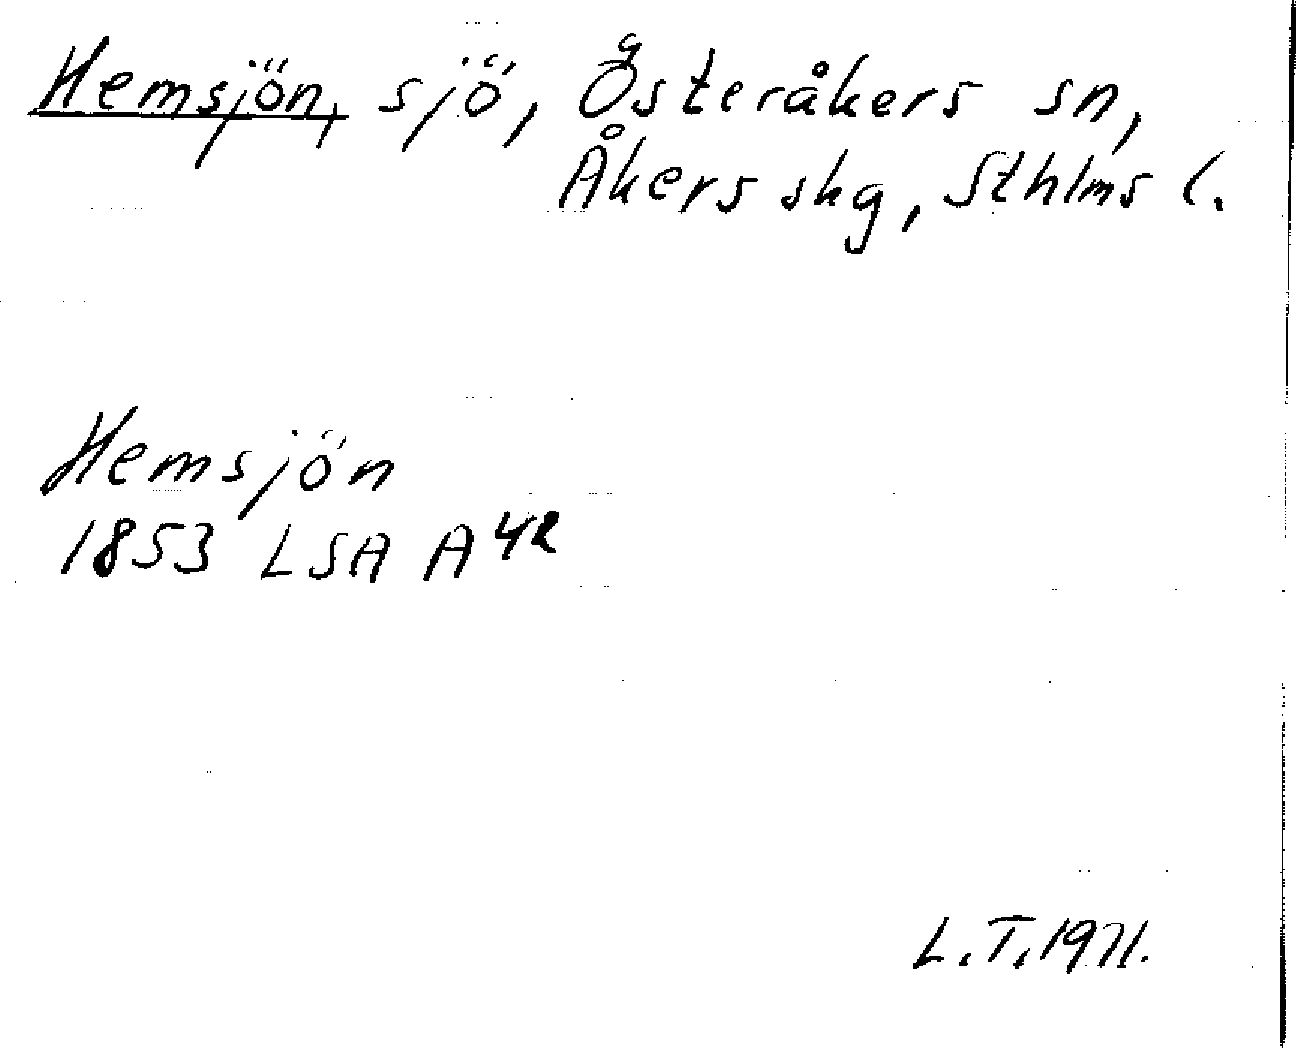 Hemsjön, sjö, Österåkers sn,
Åkers skg, Sthlms l.
Hemsjön
1853 LSA A 42
L.T. 1971.